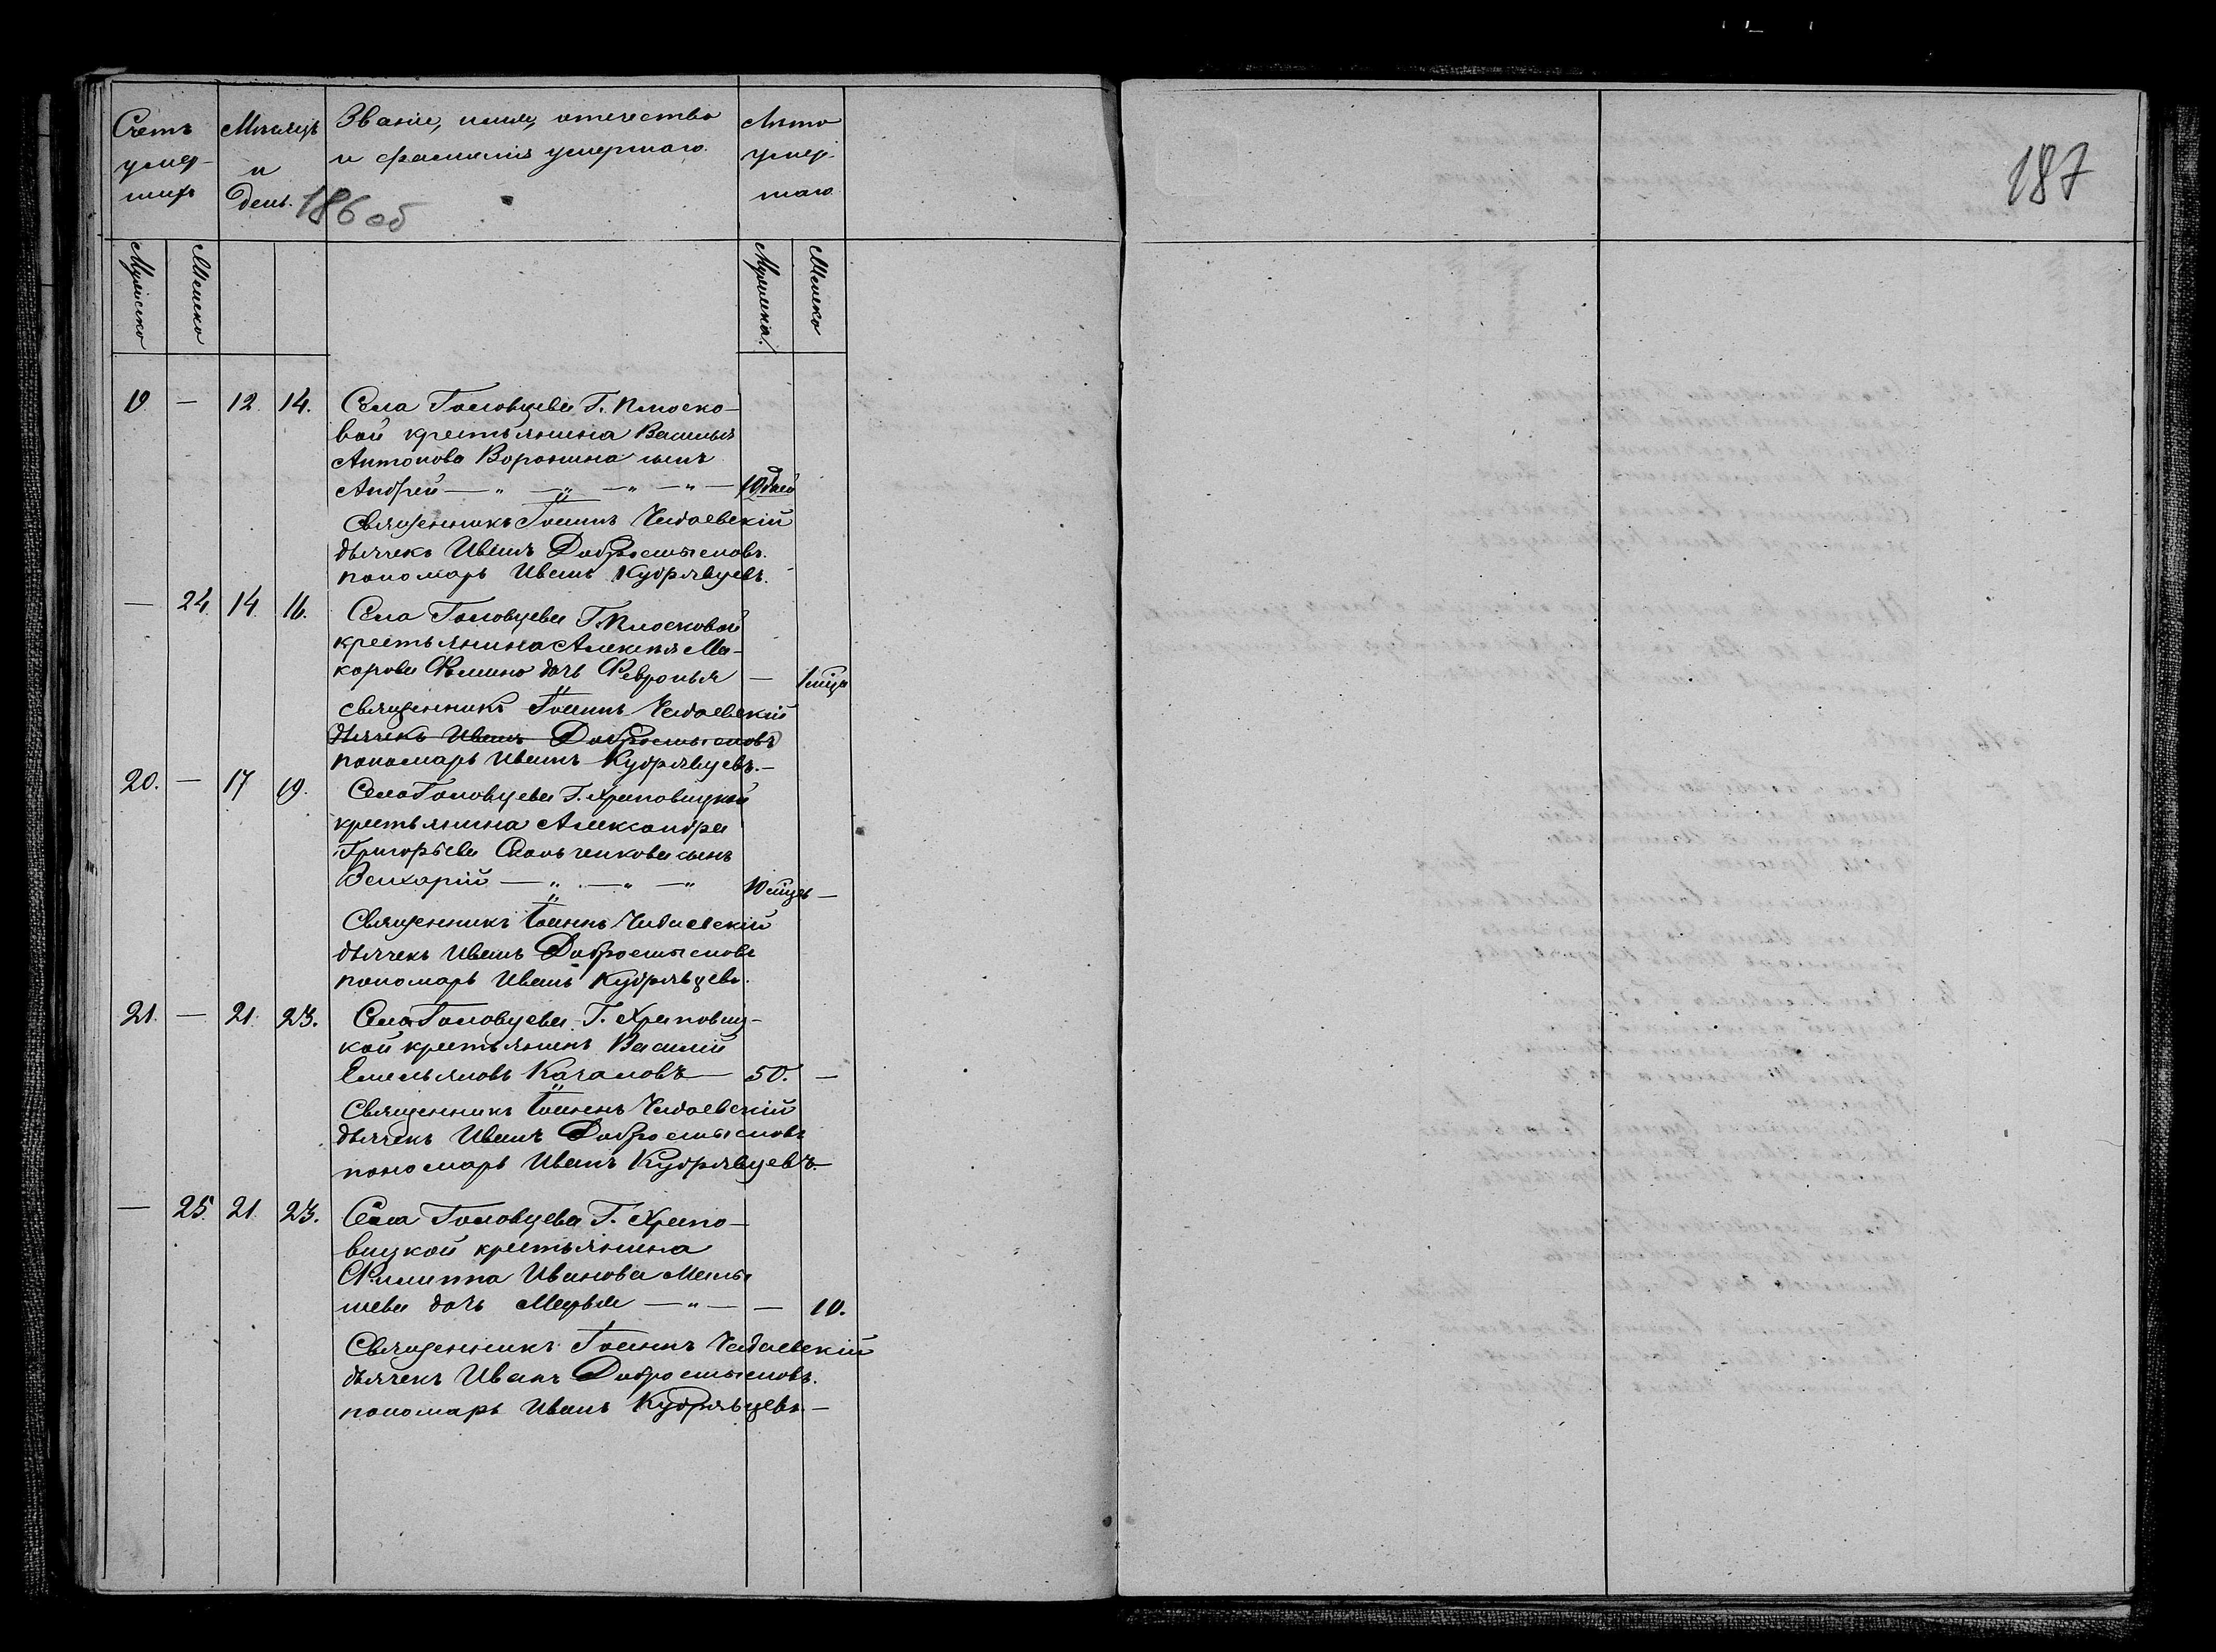 Счетъ умер- шихъ
Мѣсяцъ и день.
Званіе, имя, отечество
и фамилія умершаго.
Лѣта умер- шаго
186 об
187
Мужеска
Женска
Мужеска.
Женска
19 — 12. 14. Села Головцева Г. Плоско-
вой крестьянина Василья
Антонова Воронина сынъ
Андрей — „ — „ — „ — „ — 10 дней
Священникъ Іоаннъ Чидаевскій
дьячекъ Иванъ Добросмысловъ.
пономарь Иванъ Кудрявцевъ.
— 24. 14. 16. Села Головцева Г. Плосковой
крестьянина Алексѣя Ма-
карова Ѳомина дочь Ѳевронья — 1 мѣся
священникъ Іоаннъ Чидаевскій
дьячекъ Иванъ Добросмысловъ
пономарь Иванъ Кудрявцевъ. —
20. — 17 19. Села Головцева Г. Храповицкой
крестьянина Александра
Григорьева сынъ
Захарій — „ — „ — „ 10 мѣцъ —
Священникъ Іоаннъ Чидаевскій
дьячекъ Иванъ Добросмысловъ
пономарь Иванъ Кудрявцевъ.
21. — 21. 23. Села Головцева Г. Храповиц-
кой крестьянинъ Василій
Емельяновъ Качаловъ — 50. —
Священникъ Іоаннъ Чидаевскій
дьячекъ Иванъ Добросмысловъ
пономарь Иванъ Кудрявцевъ. —
— 25. 21. 23. Села Головцева Г. Храпо-
вицкой крестьянина
Филиппа Иванова Малы-
шева дочь Марья — „ — — 10.
Священникъ Іоаннъ Чидаевскій
дьячекъ Иванъ Добросмысловъ.
пономарь Иванъ Кудрявцевъ. —